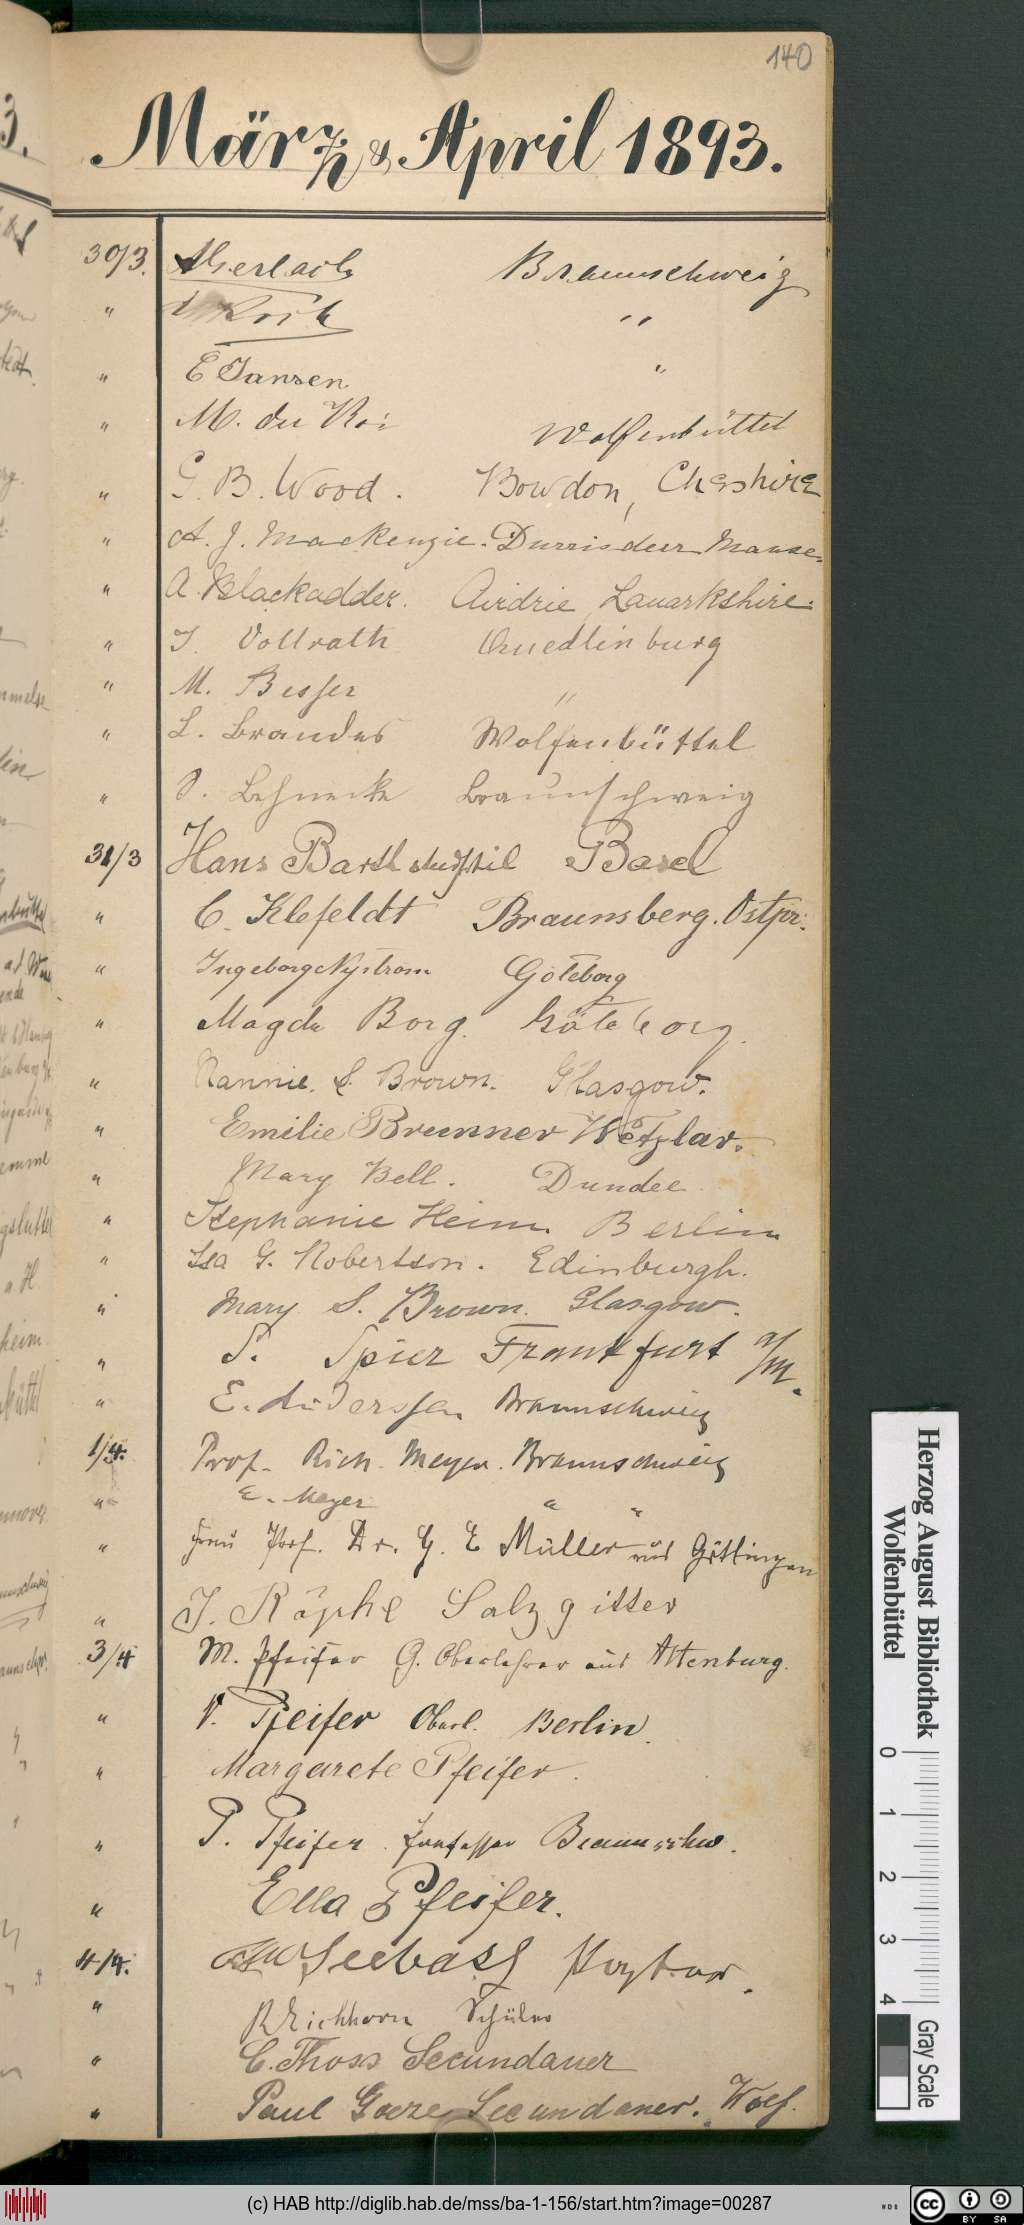 140
März & April 1893.
30/3. AGerlach Braunschweig
" Koch "
" E Jansen "
" M. du Roi Wolfenbüttel
" G. B. Wood. Bowdon, Cheshire
" A. J. Mackenzie. Durrisdeer Manse.
" A. Blackadder. Airdrie Lanarkshire.
" J. Vollrath Quedlinburg
" M. Besser "
" L. Brandes Wolfenbüttel
" Behnecke Braunschweig
31/3 Hans Barth Basel
" C. Klefeldt Braunsberg. Ostpr.
" Ingeborg Nyström Göteborg
" Magda Borg. Göteborg.
" Nannie. S. Brown. Glasgow.
" Emilie Brunner Wetzlar.
" Mary Bell. Dundee
" Stephanie Heim Berlin
" Isa G. Robertson. Edinburgh.
" Mary S. Brown. Glasgow.
" S. Spier Frankfurt a/M.
" E. Lüderssen Braunschweig
1/4. Prof. Rich. Meyer. Braunschweig
" E. Meyer " "
" Frau Prof. Dr. G. E Müller aus Göttingen
" J. Röpke Salzgitter
3/4 M. Pfeifer G. Oberlehrer aus Altenburg.
" V. Pfeifer Oberl. Berlin.
" Margarete Pfeifer.
" P. Pfeifer. Professor Braunschw.
" Ella Pfeifer.
4/4. Seebass
" R Eichhorn Schüler
" C. Thoss Secundaner
" Paul Goeze Secundaner. Wolf.
Herzog August Bibliothek
Wolfenbüttel
0 1 2 3 4
Gray Scale
(c) HAB http://diglib.hab.de/mss/ba-1-156/start.htm?image=00287
WDB
CC BY SA